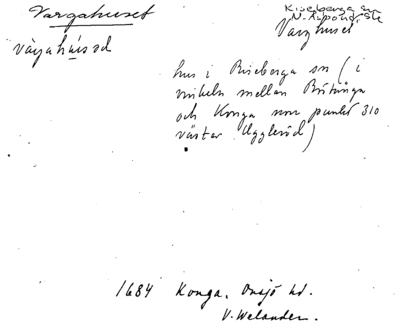 Vargahuset
Riseberga sn
N. Åsbo hd, Sk
Varghuset
hus i Riseberga sn (i
vinkeln mellan
och Konga som punkt 310
väster Uggleröd)
1684 Konga, Onsjö hd.
V. Welander.